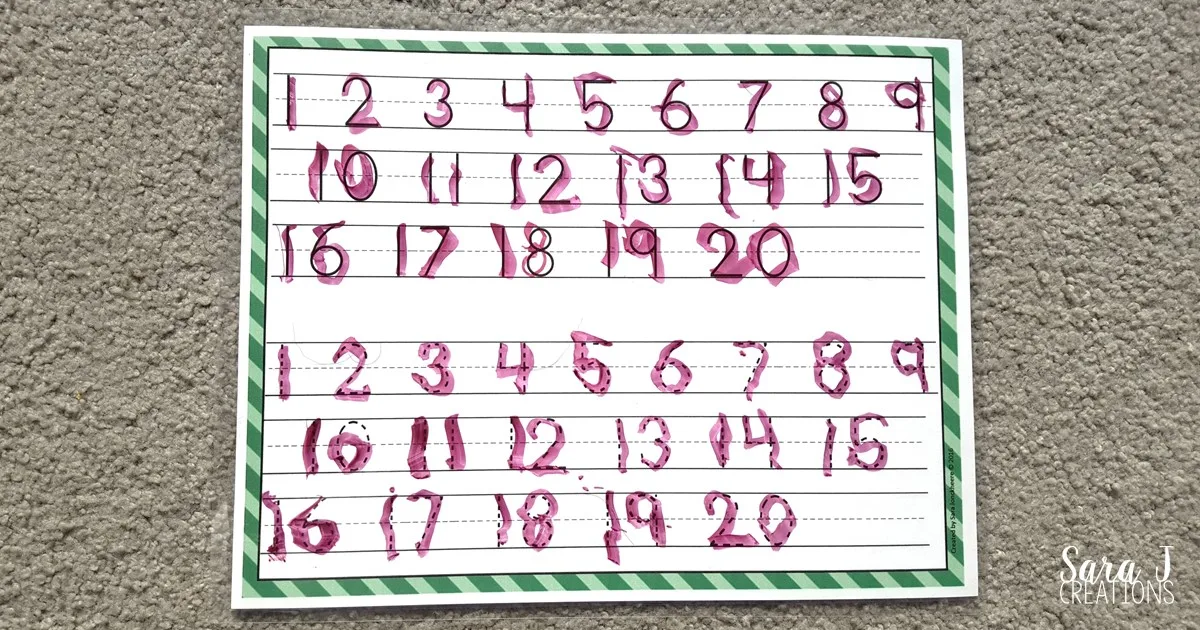 1 2 3 4 5 6 7 8 9
10 11 12 13 14 15
16 17 18 19 20
1 2 3 4 5 6 7 8 9
10 11 12 13 14 15
16 17 18 19 20
Sara J
CREATIONS